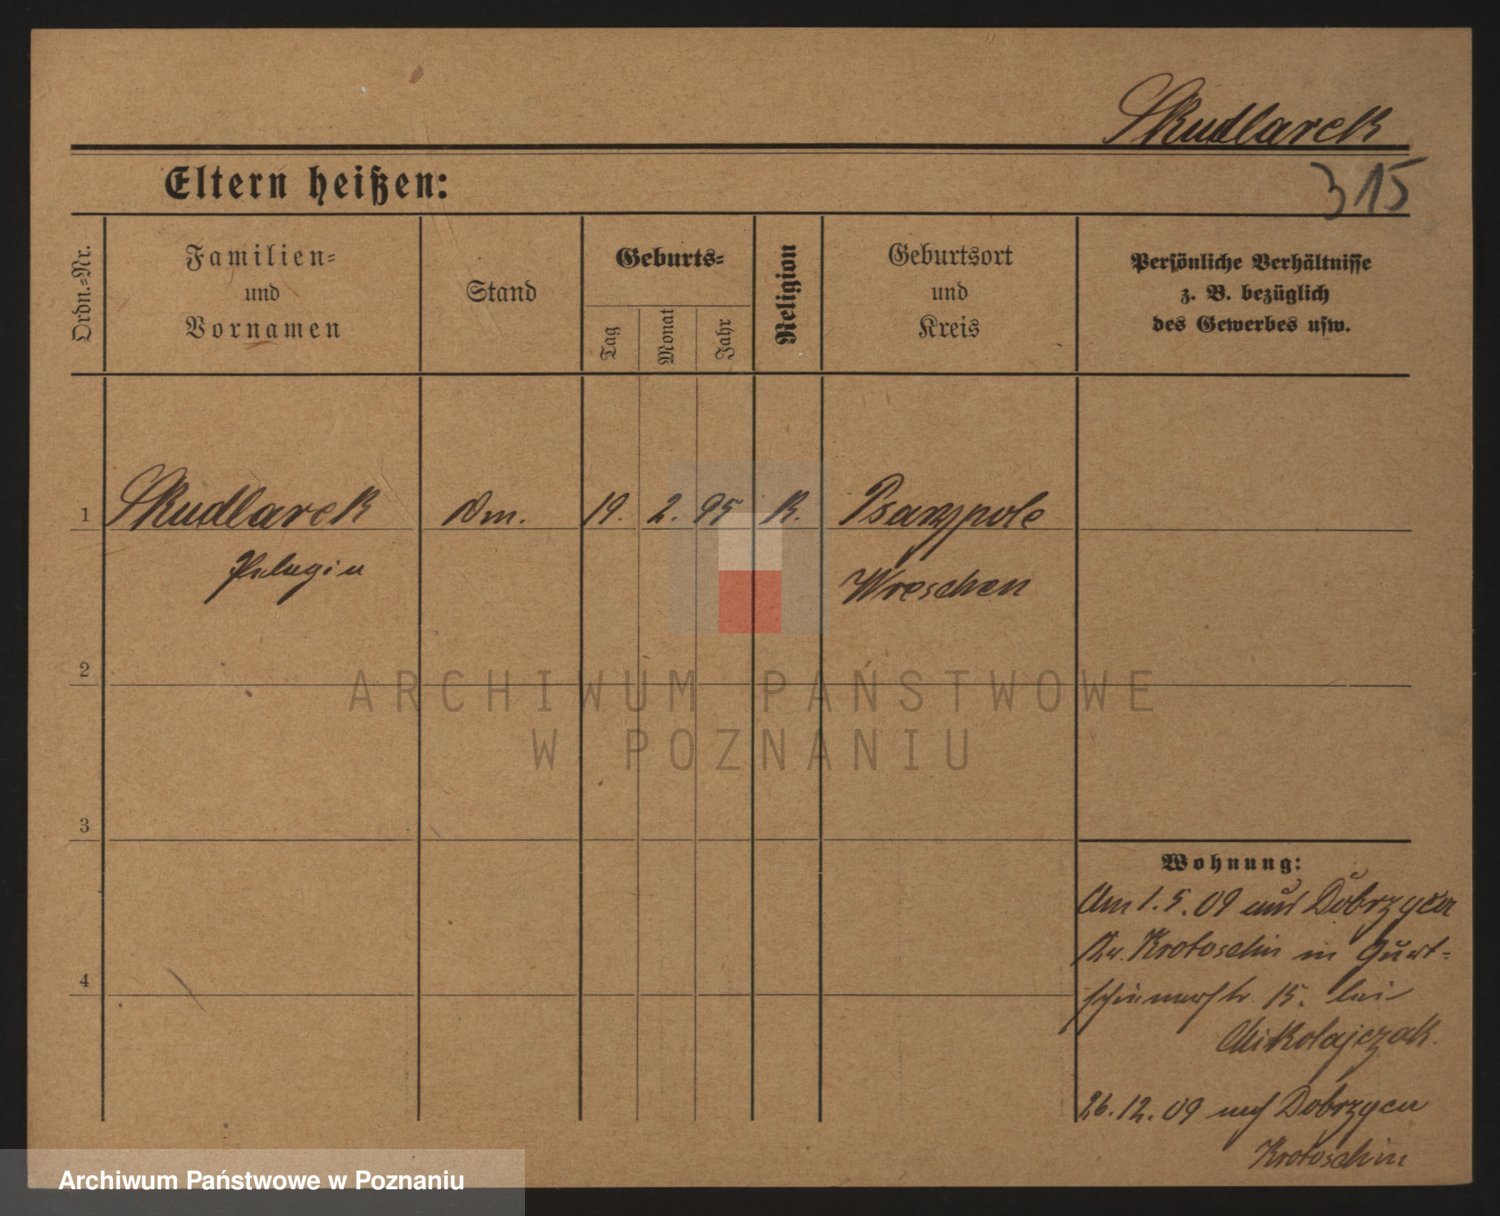 Skudlarek
315
Eltern heißen:
Ordn.-Nr.
Familien-
und
Vornamen
Stand
Geburts-
Tag
Monat
Jahr
Religion
Geburtsort
und
Kreis
Persönliche Verhältnisse
z. B. bezüglich
des Gewerbes usw.
1 Skudlarek Dm. 19. 2. 95 K. Psarypole
Pelagia Wreschen
2
ARCHIWUM PAŃSTWOWE
W POZNANIU
3
Wohnung:
Am 1. 5. 09 aus Dobrzyca
Kr. Krotoschin in Gurt-
schinerstr. 15. bei
4
Mikolajczak.
26. 12. 09 nach Dobrzyca
Krotoschin
Archiwum Państwowe w Poznaniu